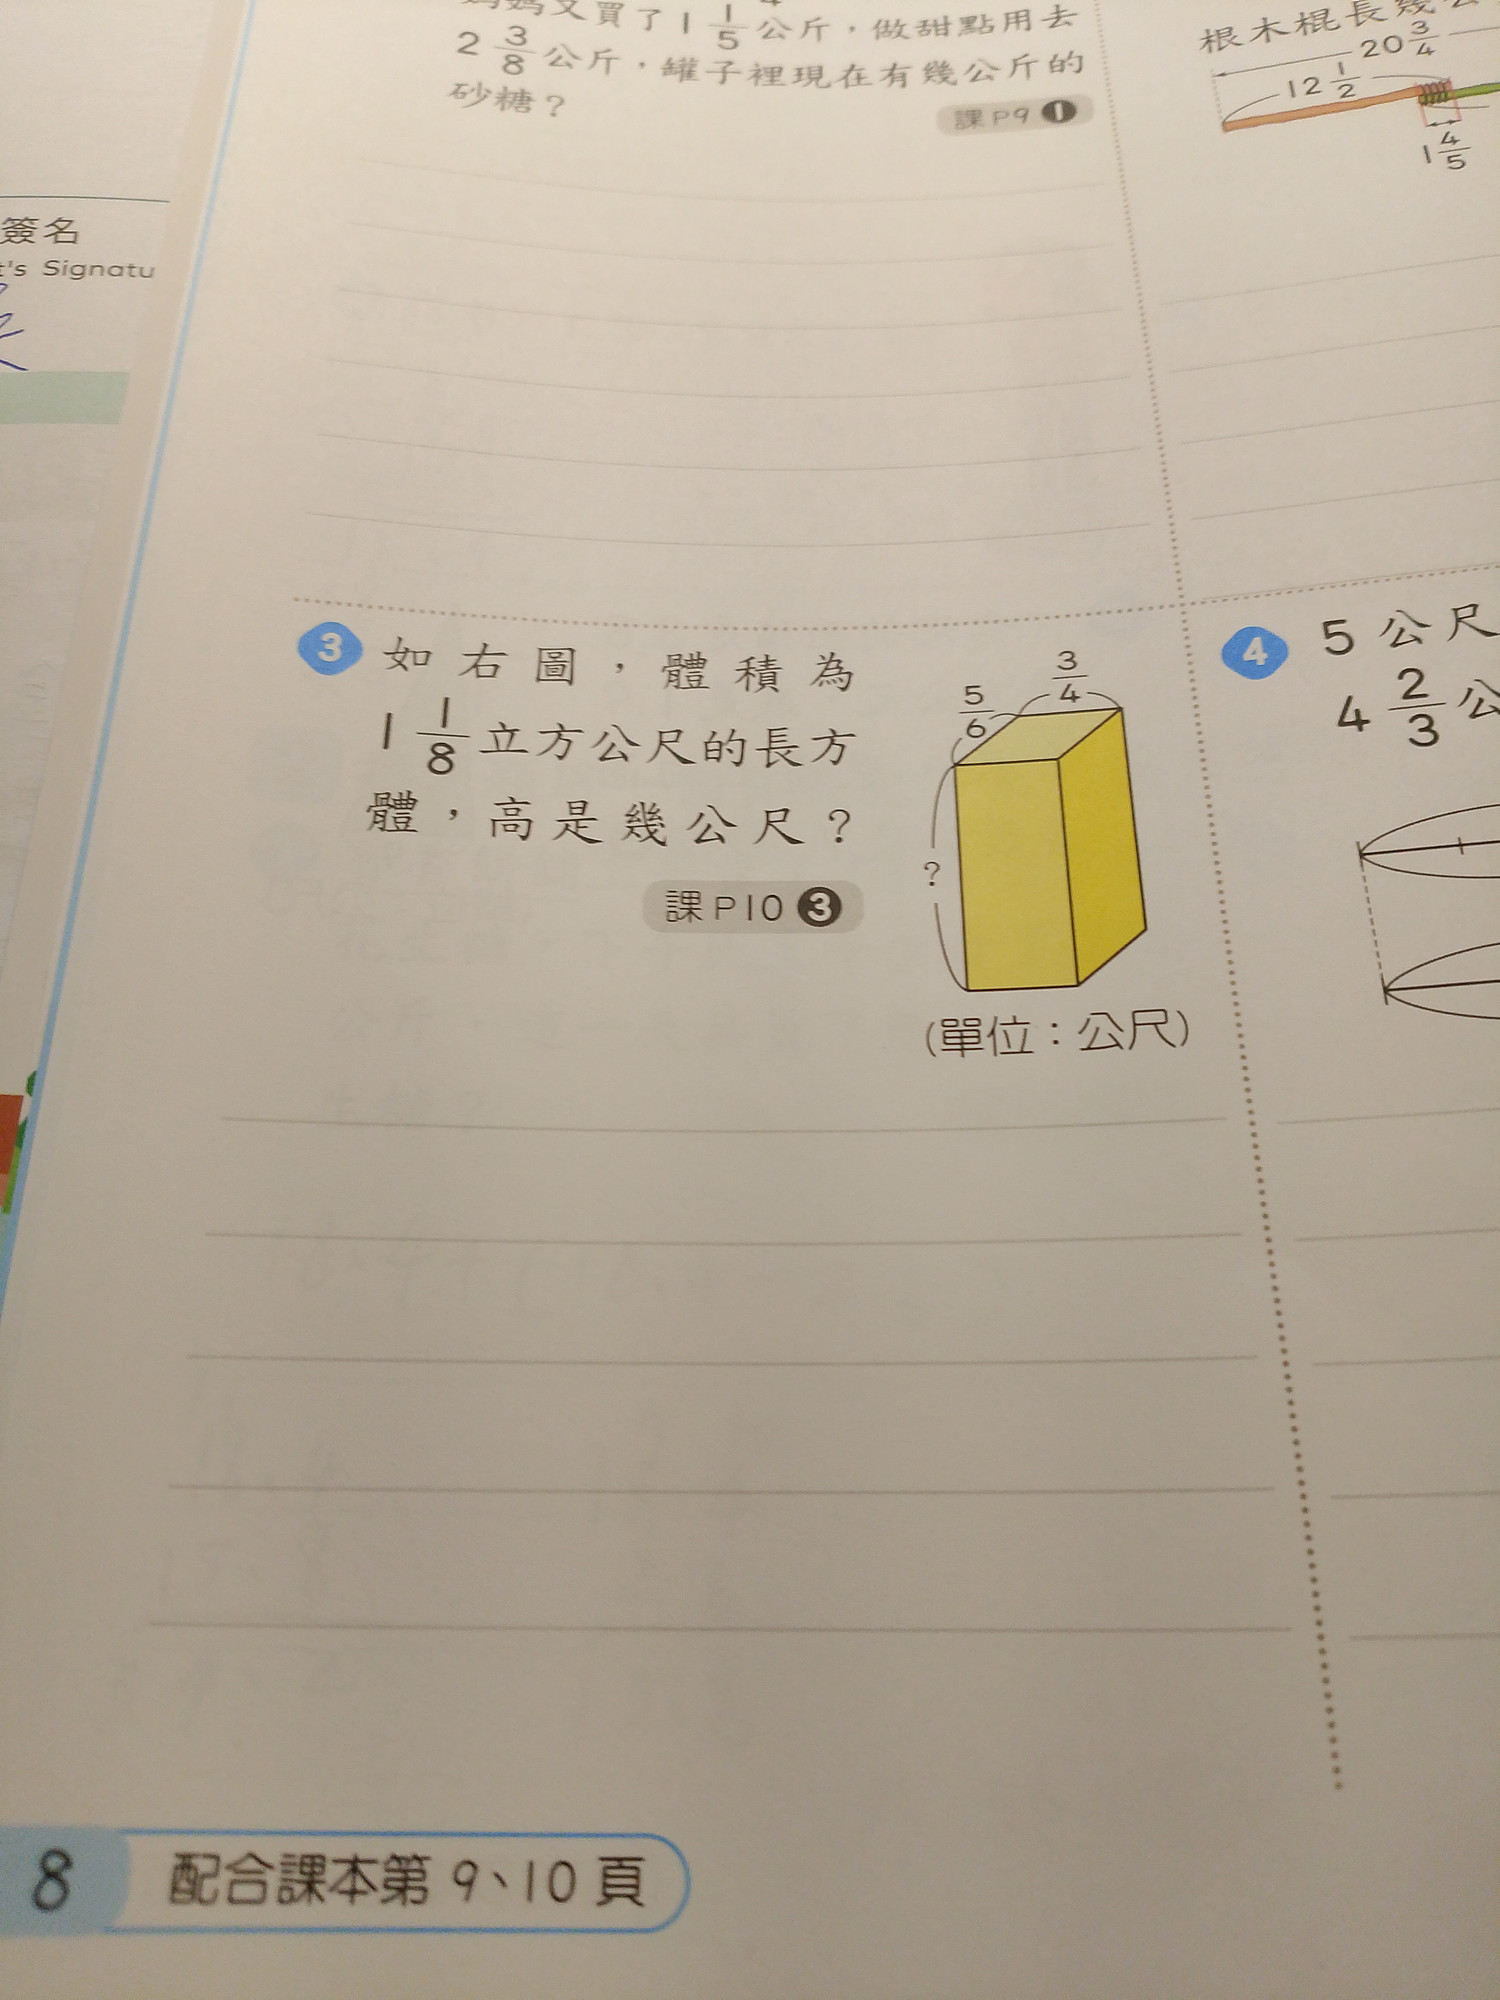 媽媽又買了1 1/5公斤,做甜點用去
2 3/8公斤,罐子裡現在有幾公斤的
砂糖?
課P9 1
根木棍長幾公
20 3/4
12 1/2
1 4/5
簽名
t's Signatu
3 如右圖,體積為
1 1/8立方公尺的長方
體,高是幾公尺?
課P10 3
5/6
3/4
?
(單位:公尺)
4 5公尺
4 2/3公
8 配合課本第9、10頁